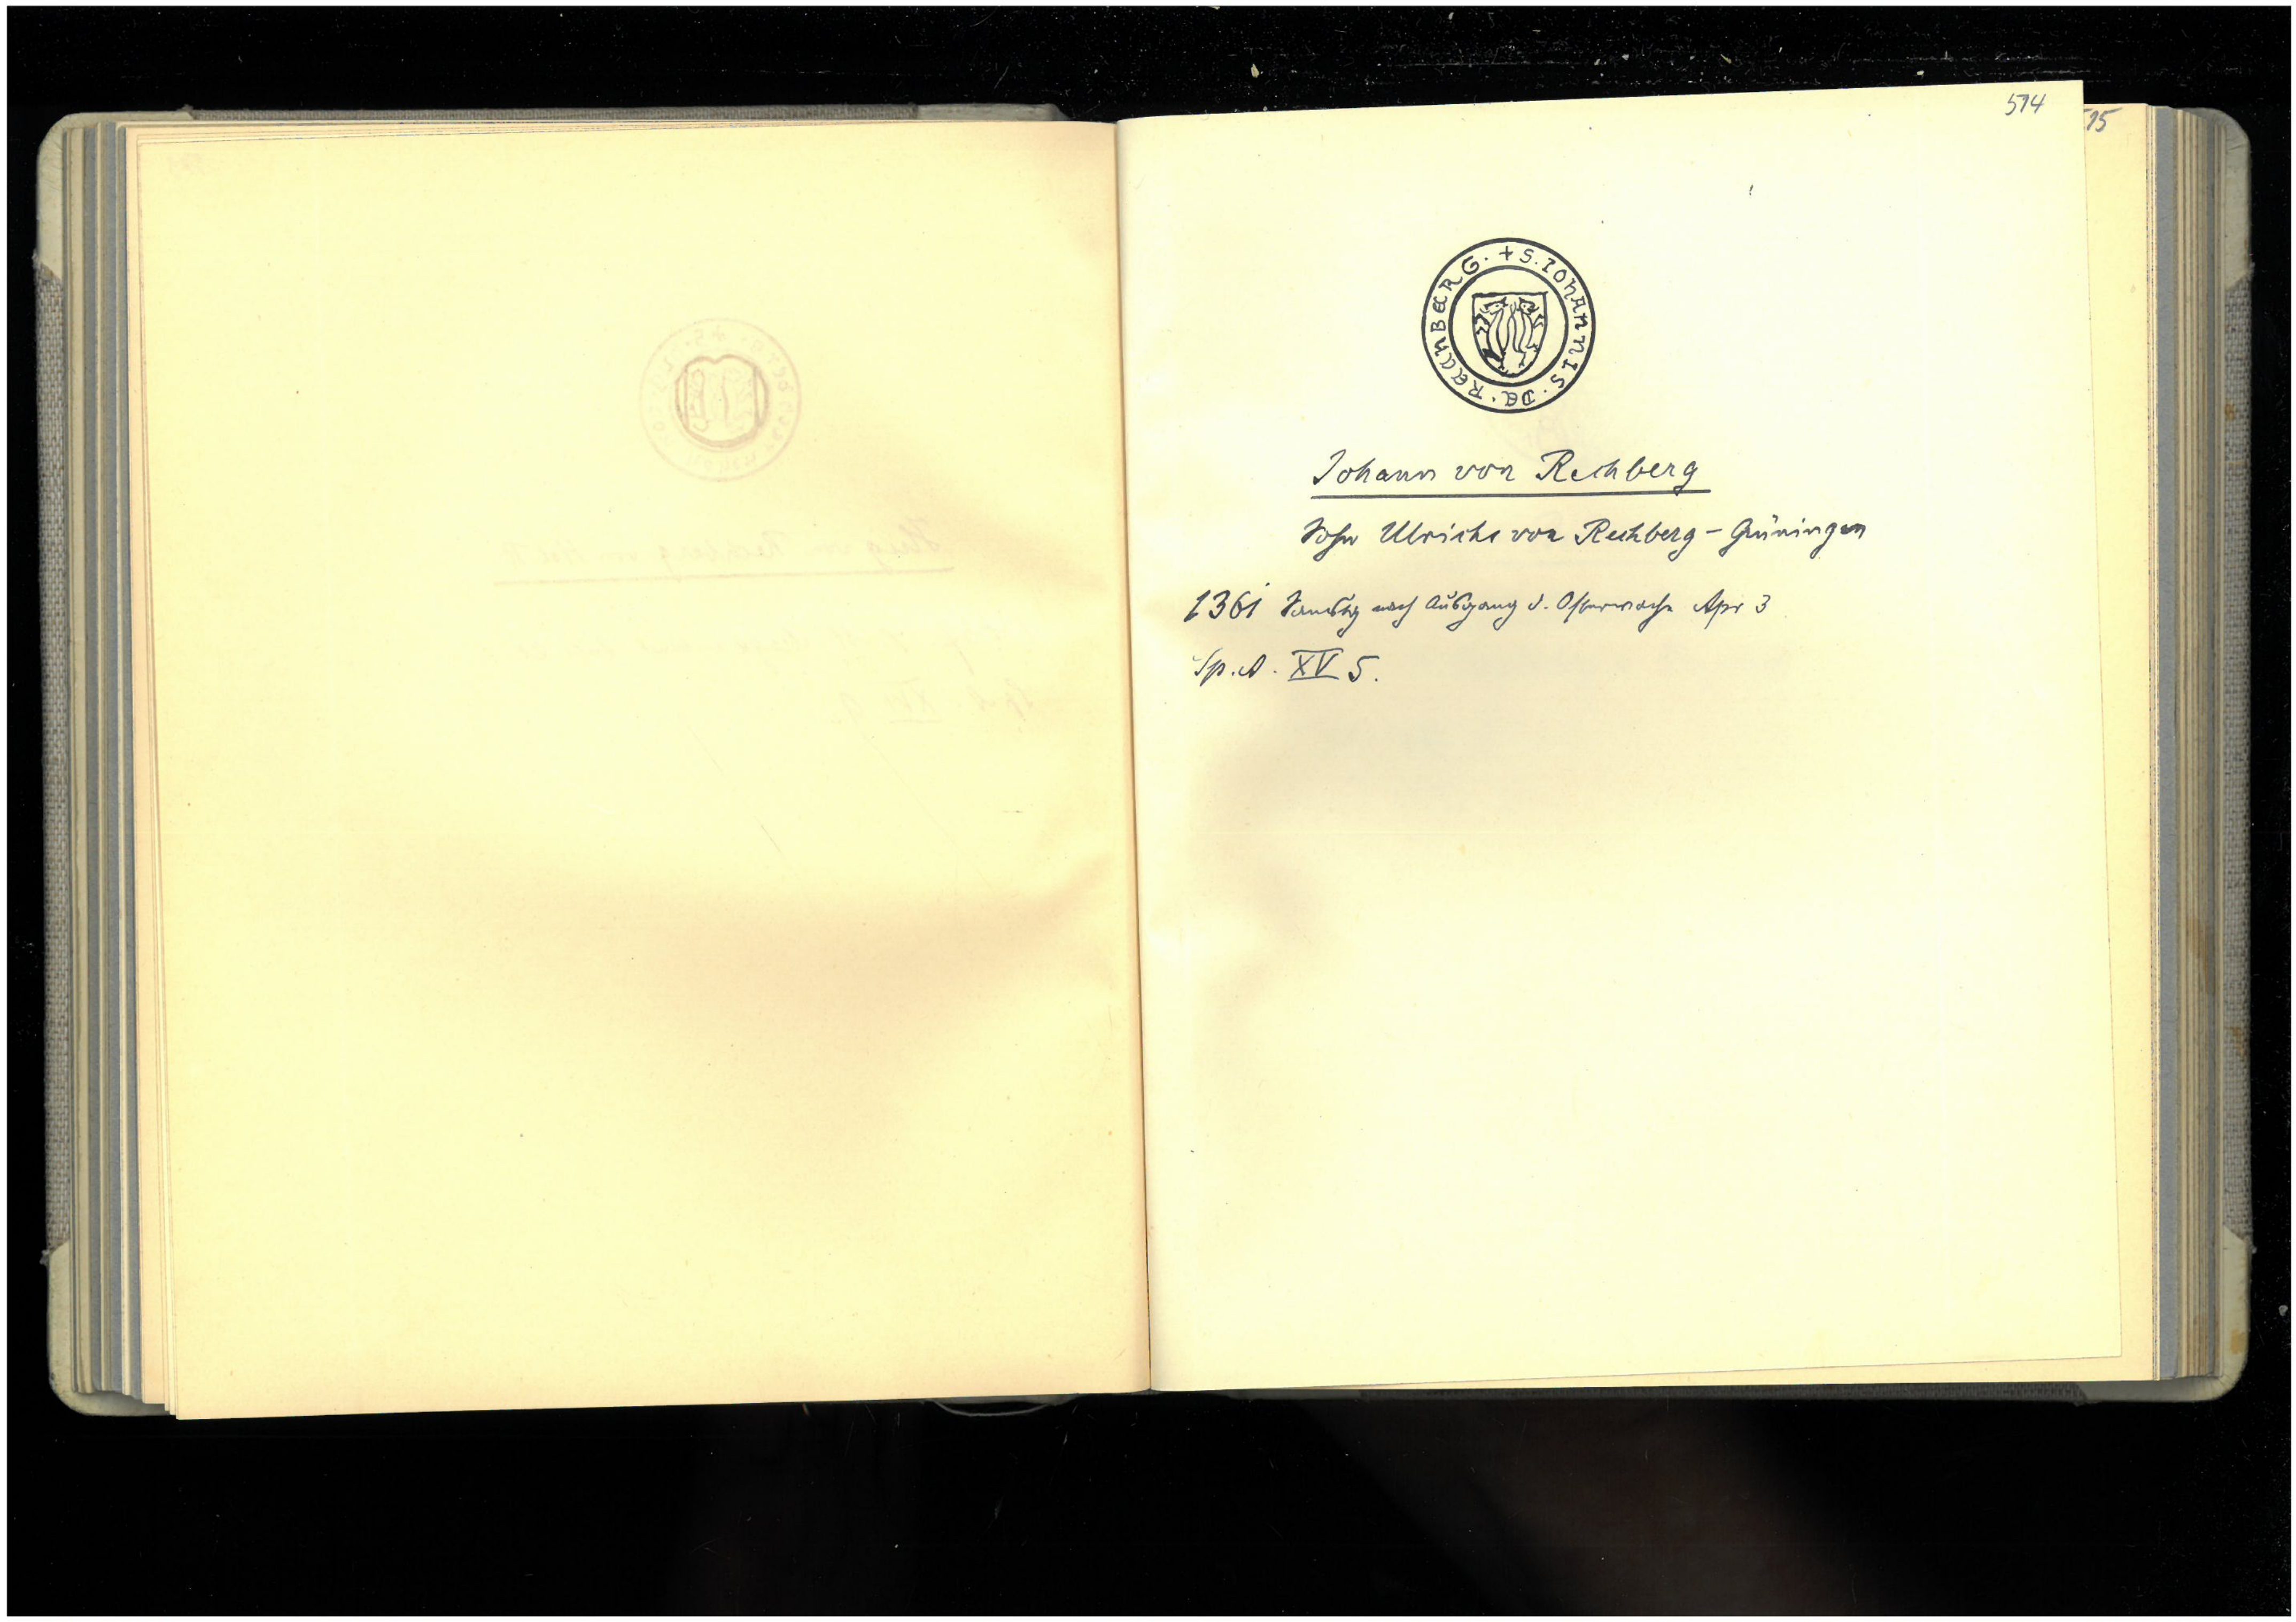 514
15
+ S. IOHANNIS. DE. RECHBERG.
Johann von Rechberg
Sohn Ulrichs von Rechberg - Grüningen
1361 Samstag nach Ausgang d. Osterwoche Apr 3
Sp. A. XV 5.